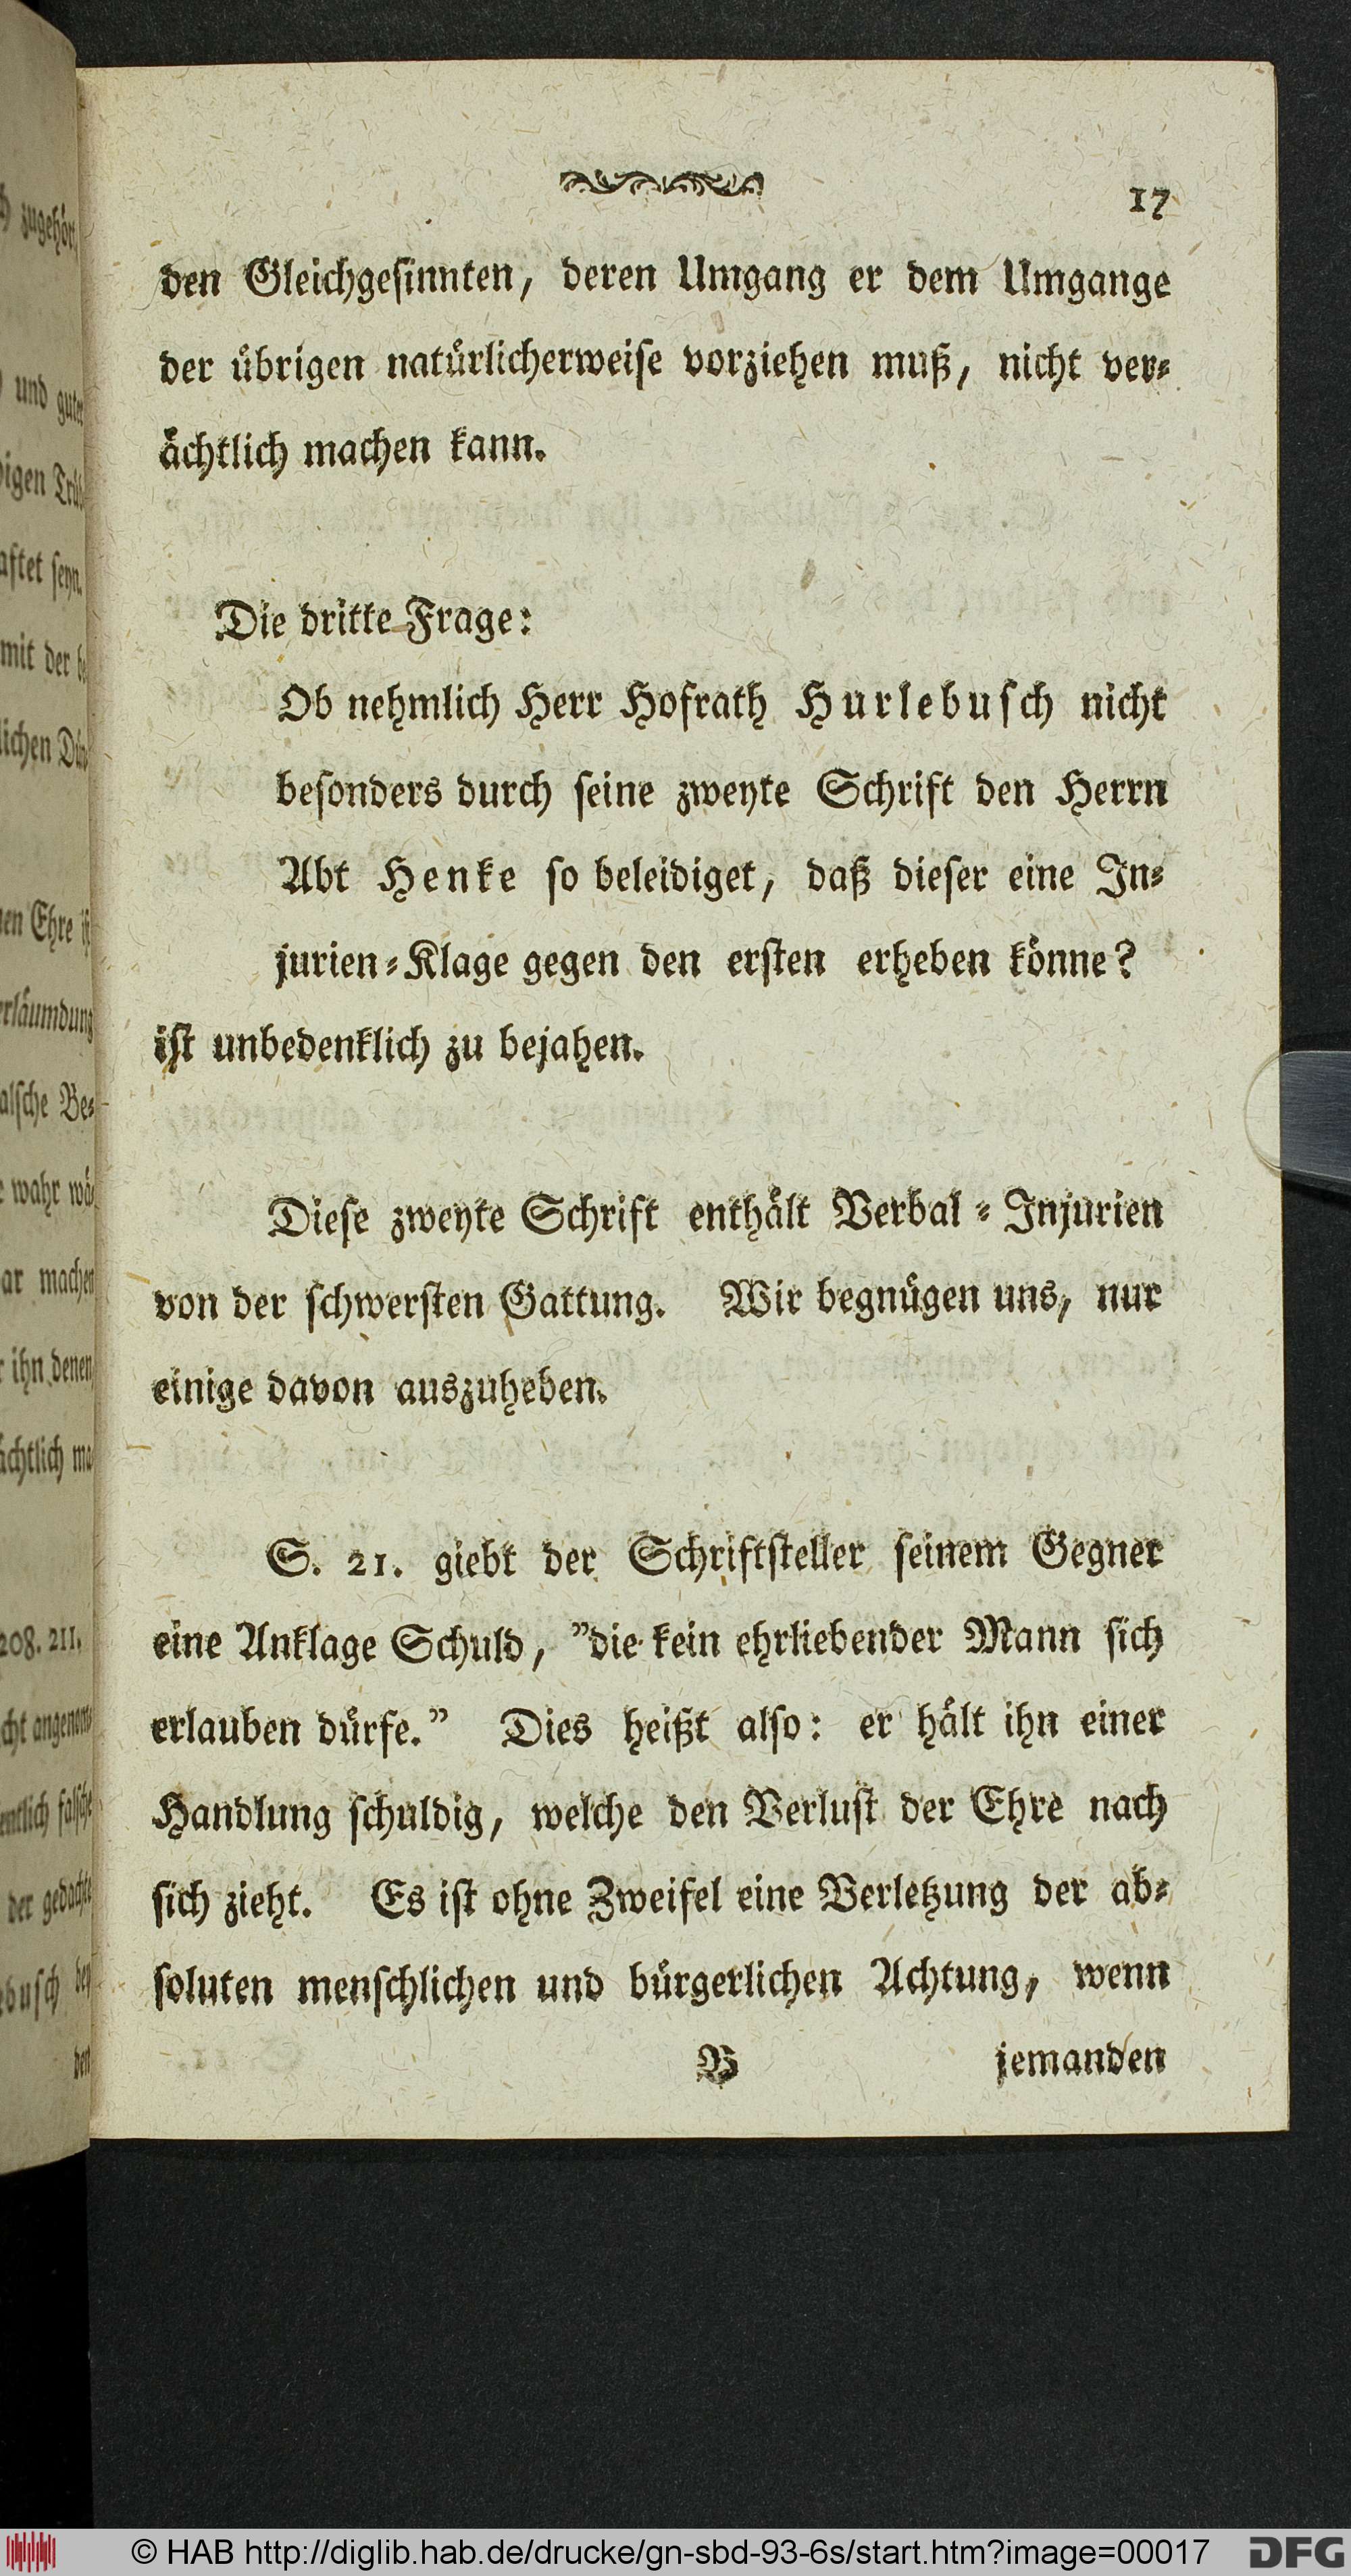 17
den Gleichgesinnten, deren Umgang er dem Umgange
der übrigen natürlicherweise vorziehen muß, nicht ver-
ächtlich machen kann.
Die dritte Frage:
Ob nehmlich Herr Hofrath Hurlebusch nicht
besonders durch seine zweyte Schrift den Herrn
Abt Henke so beleidiget, daß dieser eine In-
jurien-Klage gegen den ersten erheben könne?
ist unbedenklich zu bejahen.
Diese zweyte Schrift enthält Verbal-Injurien
von der schwersten Gattung. Wir begnügen uns, nur
einige davon auszuheben.
S. 21. giebt der Schriftsteller seinem Gegner
eine Anklage Schuld, "die kein ehrliebender Mann sich
erlauben dürfe." Dies heißt also: er hält ihn einer
Handlung schuldig, welche den Verlust der Ehre nach
sich zieht. Es ist ohne Zweifel eine Verletzung der ab-
soluten menschlichen und bürgerlichen Achtung, wenn
B jemanden
zugehör,
und gute
igen Trüb
aftet seyn.
mit der be
lichen Dün
en Ehre ist
erläumdung
alsche Be-
wahr wä-
ar machen
ihn denen
ächtlich ma
208. 211.
cht angenom
entlich falsche
der gedachte
busch den
den
© HAB http://diglib.hab.de/drucke/gn-sbd-93-6s/start.htm?image=00017
DFG